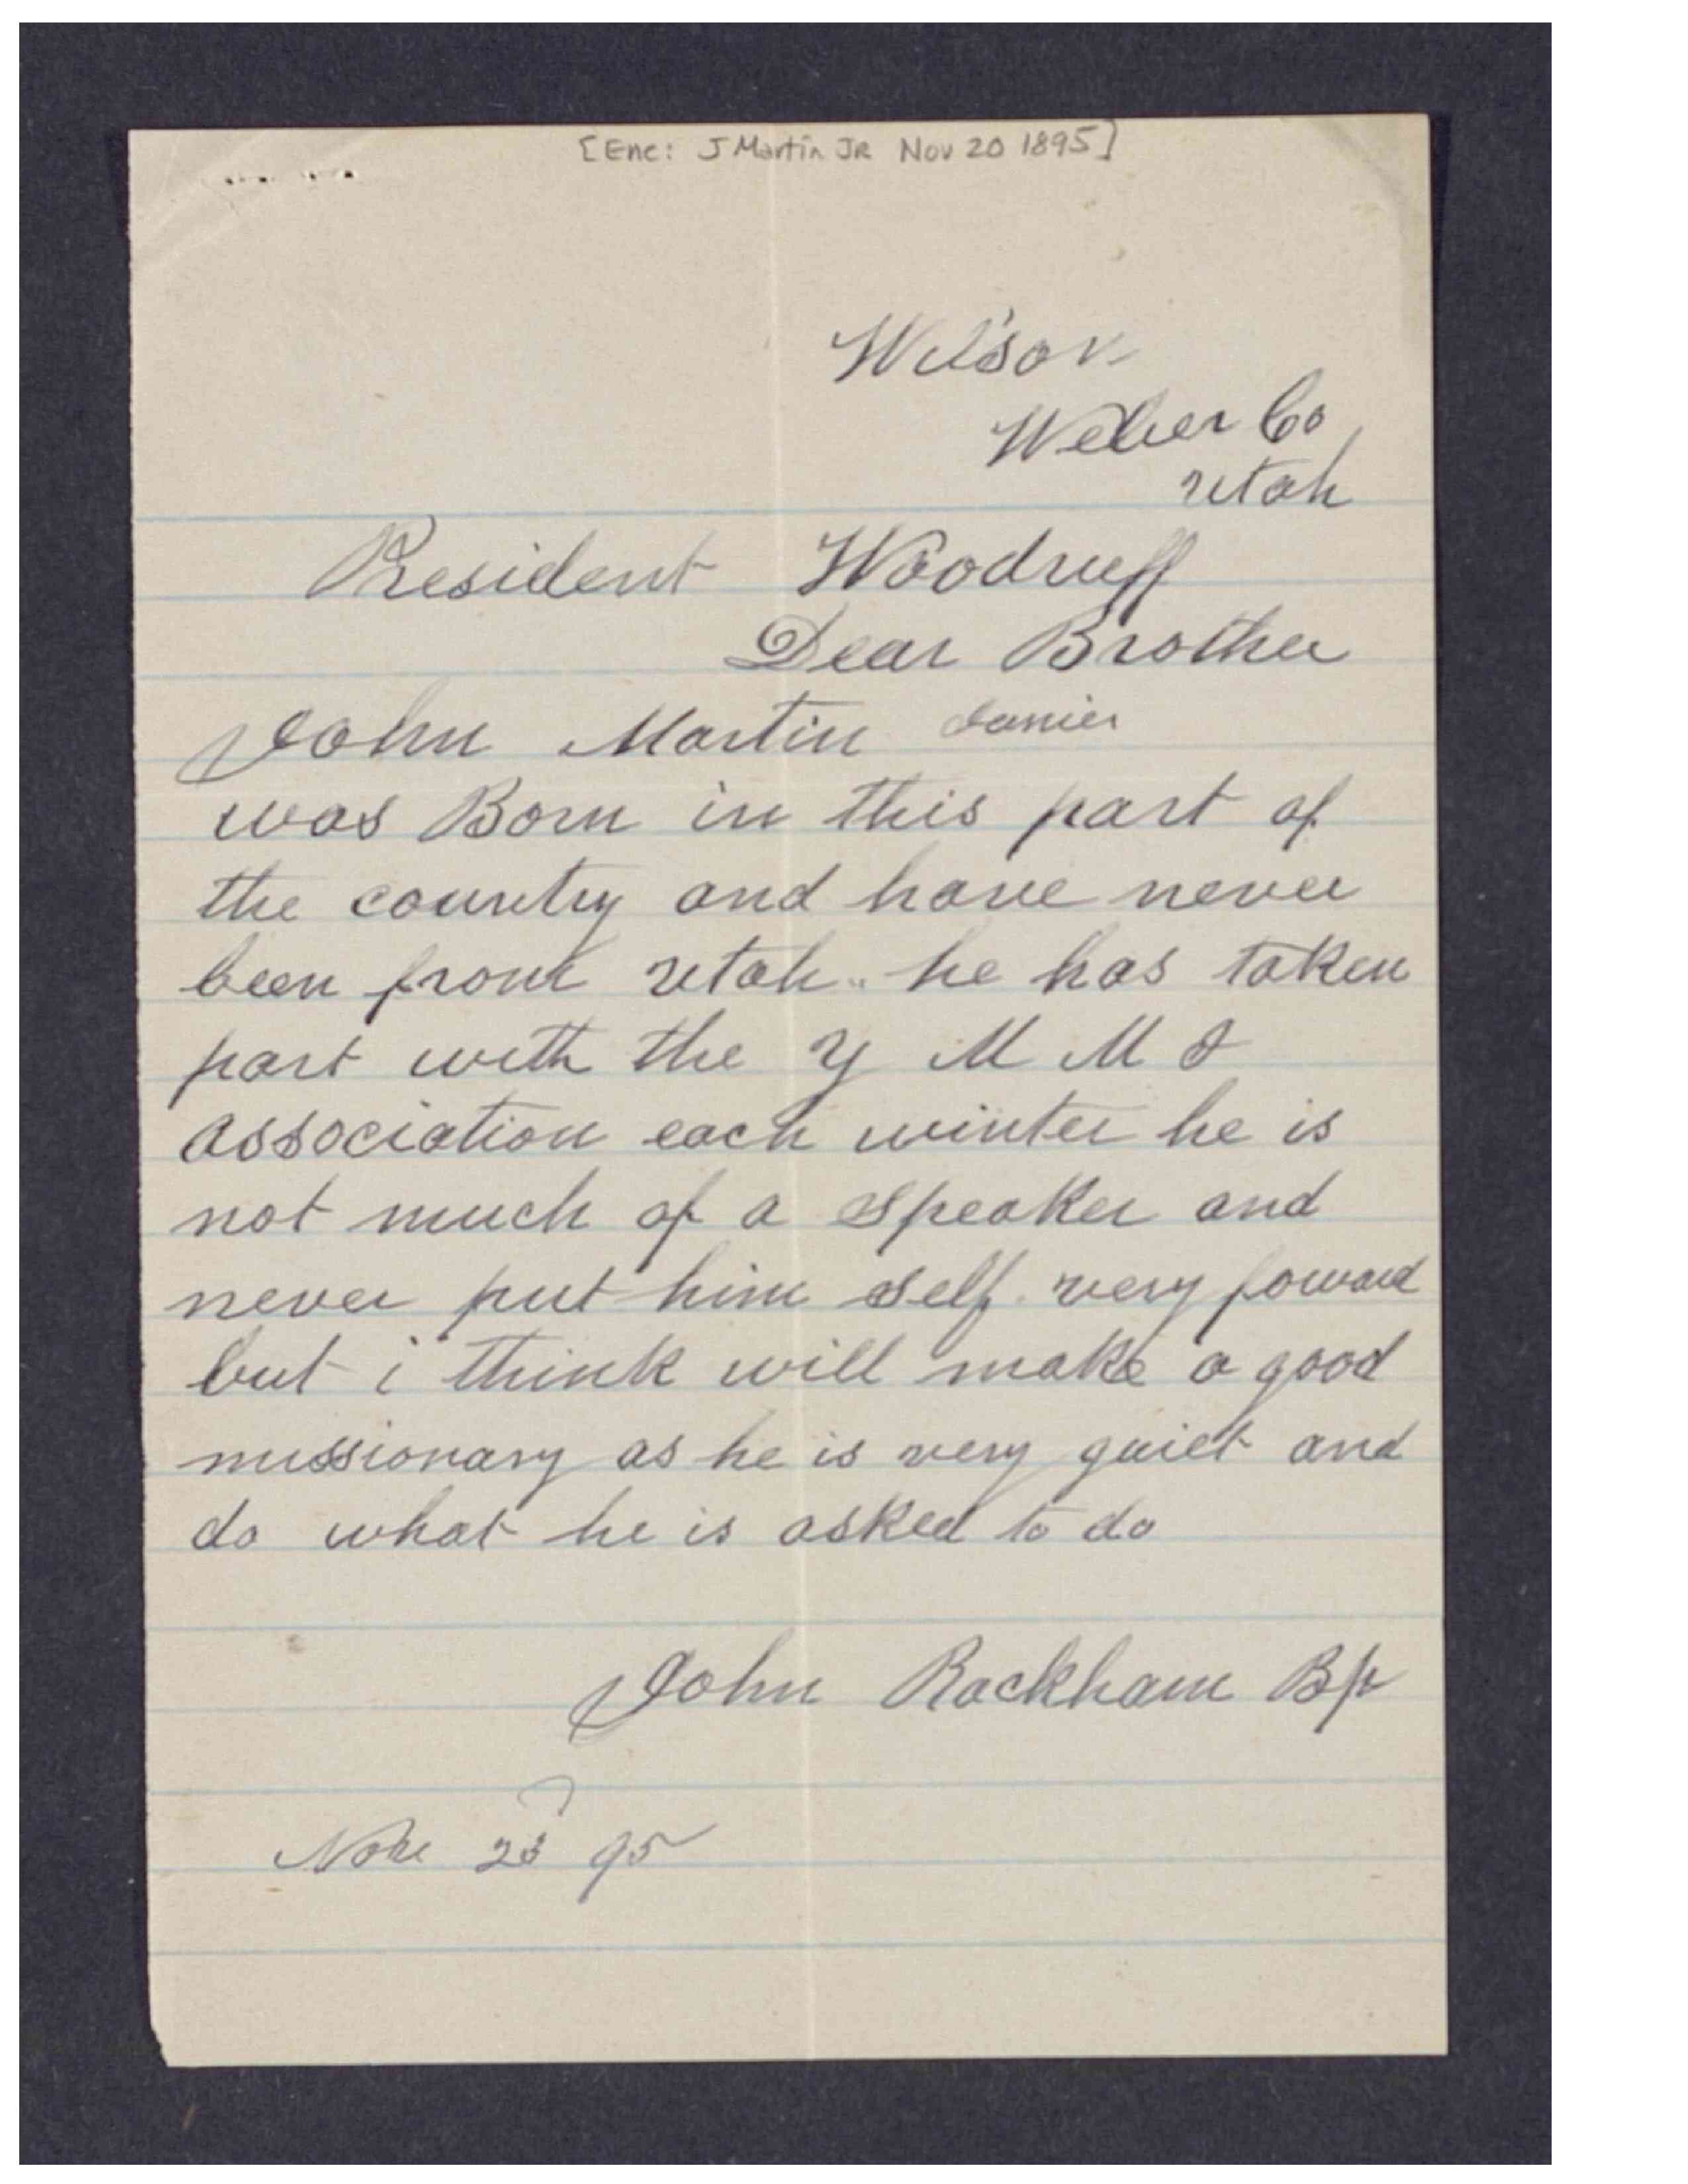 [Enc: J Martin JR Nov 20 1895]
Wilson
Weber Co
utah
President Woodruff
Dear Brother
John Martin Junier
was Born in this part of
the country and have never
been from utah he has taken
part with the Y M M I
association each winter he is
not much of a speaker and
never put him self very foward
but i think will make a good
missionary as he is very quiet and
do what he is asked to do
John Rackham Bp
95